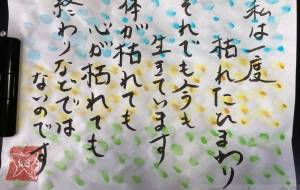 私は一度
枯れたひまわり
それでも今も
生きています
体が枯れても
心が枯れても
終わりなどでは
ないのです